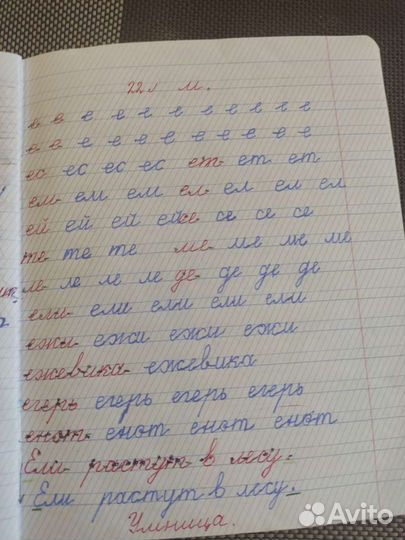 22 м.
е е е е е е е е е е е
е е е е е е е е е е е
ес ес ес ес ет ет ет
ем ем ем ел ел ел ел
ей ей ей ей се се се се
те те те ме ме ме ме
ле ле ле ле де де де де
ели ели ели ели ели
ежи ежи ежи ежи
ежевика ежевика
егерь егерь егерь егерь
енот енот енот енот
Ели растут в лесу.
Ели растут в лесу.
Умница.
Avito